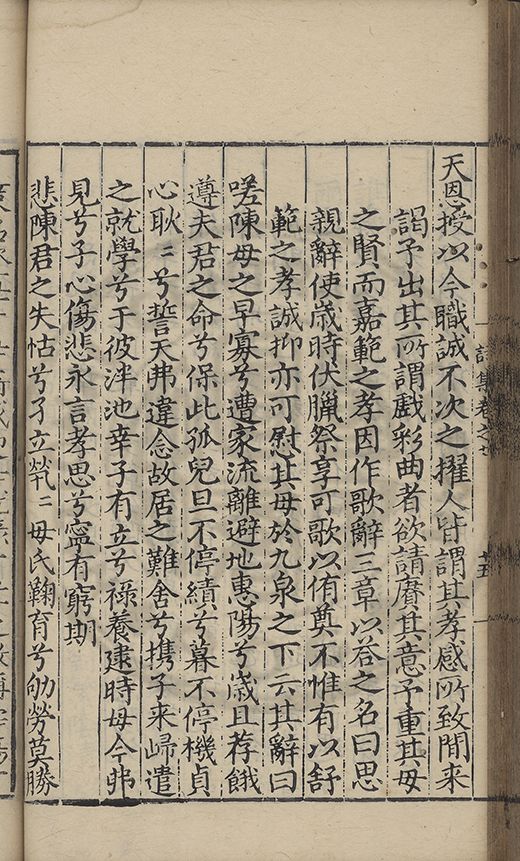 天恩授以今職誠不次之擢人皆謂其孝感所致間來
謁予出其所謂戲彩曲者欲請賡其意予重其母
之賢而嘉範之孝因作歌辭三章以荅之名曰思
親辭使歲時伏臘祭享可歌以侑奠不惟有以舒
範之孝誠抑亦可慰其母於九泉之下云其辭曰
嗟陳母之早寡兮遭家流離避地惠陽兮歲且荐餓
遵夫君之命兮保此孤兒旦不停績兮暮不停機貞
心耿〻兮誓天弗違念故居之難舍兮携子來歸遣
之就學兮于彼泮池幸子有立兮祿養逮時母今弗
見兮子心傷悲永言孝思兮寧有窮期
悲陳君之失怙兮孑立煢〻母氏鞠育兮劬勞莫勝
詩集卷之七
廿五